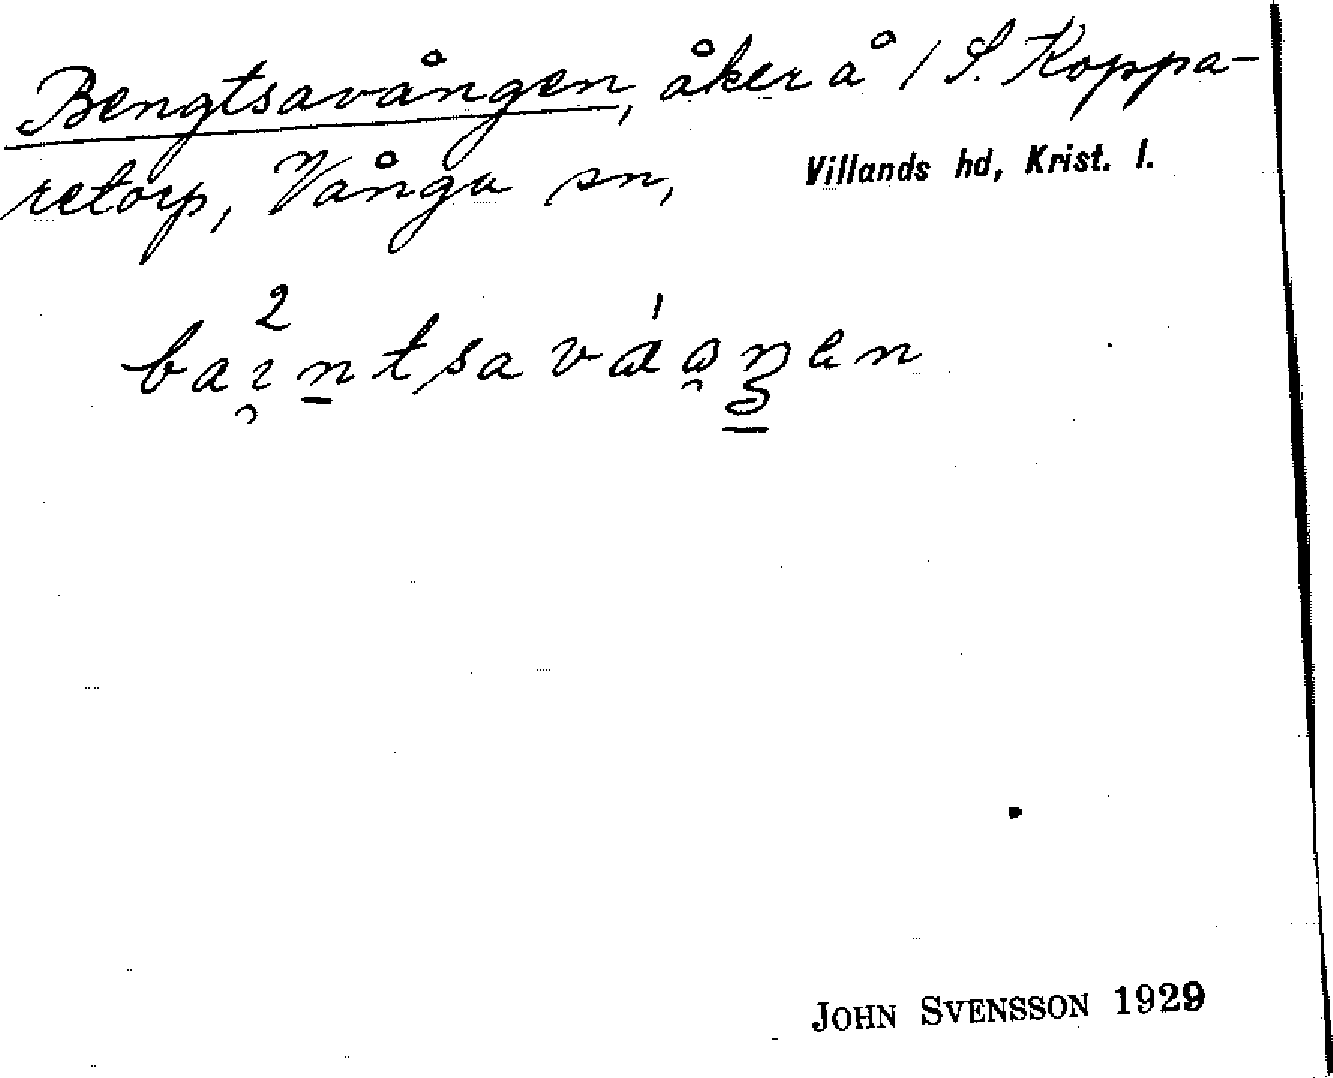 Bengtsavången, åker å / S. Koppa-
retorp, Vånga sn, Villands hd, Krist. l.
JOHN SVENSSON 1929